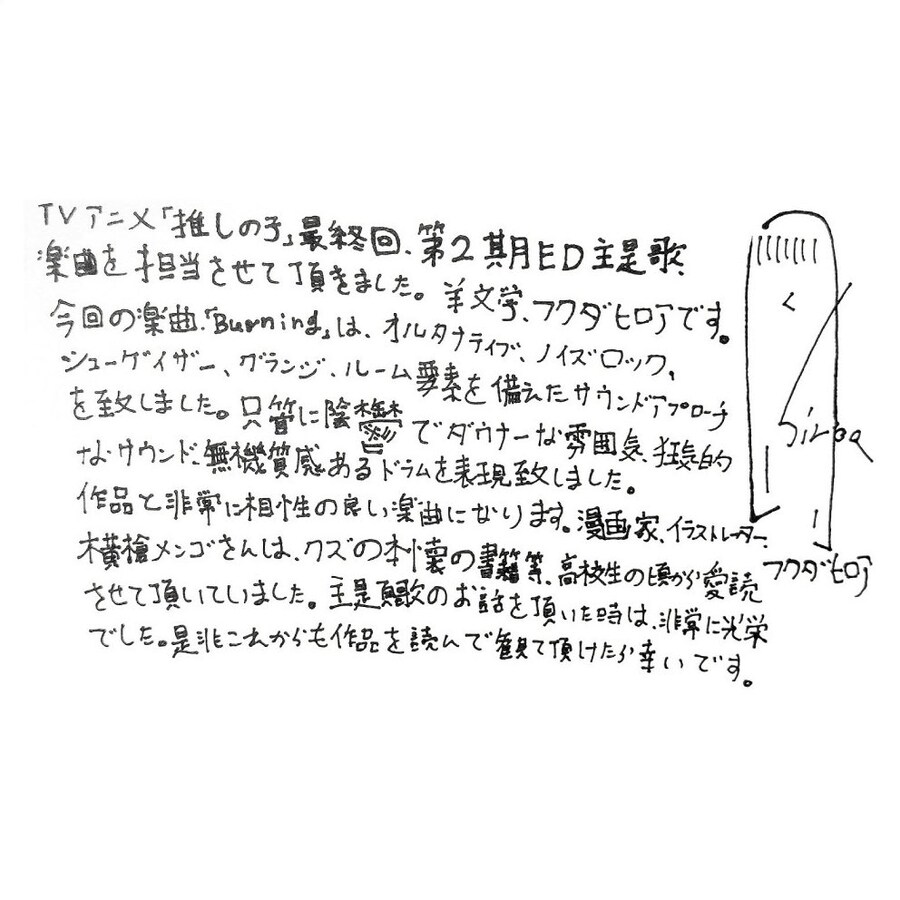 TVアニメ「推しの子」最終回、第2期ED主題歌
楽曲を担当させて頂きました。羊文学、フクダヒロアです。
今回の楽曲、「Burning」は、オルタナティブ、ノイズロック、
シューゲイザー、グランジ、ルーム要素を備えたサウンドアプローチ
を致しました。只管に陰鬱でダウナーな雰囲気、狂気的
なサウンド、無機質感あるドラムを表現致しました。
作品と非常に相性の良い楽曲になります。漫画家、イラストレーター、
横槍メンゴさんは、クズの本懐の書籍等、高校生の頃から愛読
させて頂いていました。主題歌のお話を頂いた時は、非常に光栄
でした。是非これからも作品を読んで観て頂けたら幸いです。
フクダヒロア